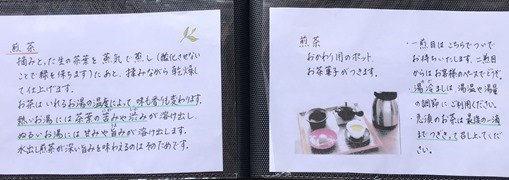 煎茶
摘みとった生の茶葉を蒸気で蒸し(酸化させない
ことで緑を保ちます)たあと、揉みながら乾燥し
て仕上げます。
お茶はいれるお湯の温度によって、味も香りも変わります。
熱いお湯には茶葉の苦みや渋みが溶け出し、
ぬるいお湯には甘みや旨みが溶け出します。
水出し煎茶が深い旨みを味わえるのはそのためです。
煎茶
おかわり用のポット
お茶菓子がつきます。
・一煎目はこちらでついで
お持ちいたします。二煎目
からはお客様のペースでどうぞ。
・湯冷ましは湯温や湯量
の調節にご利用ください。
・急須のお茶は最後の一滴
までつぎきって召し上ってくだ
さい。